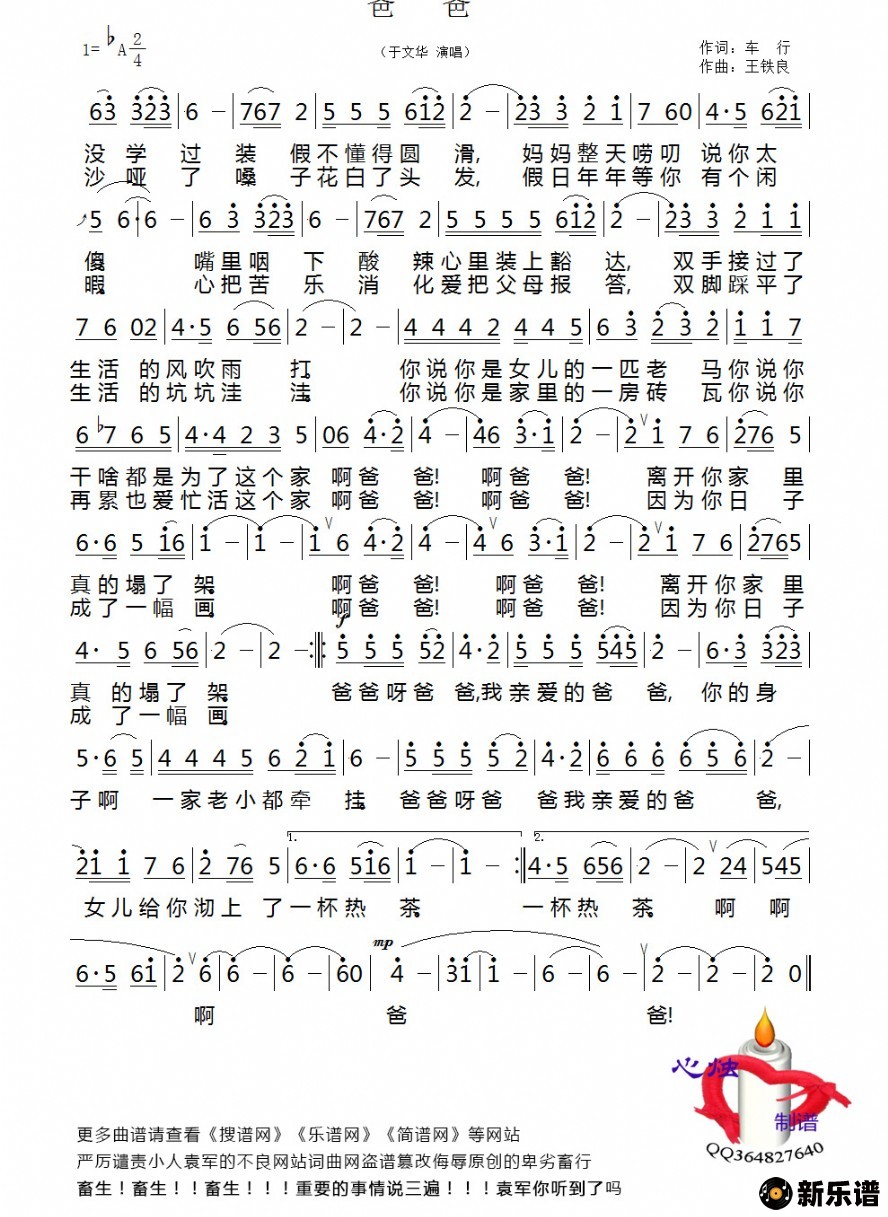 爸 爸
1=♭A 2/4
（于文华 演唱）
作词：车 行
作曲：王铁良
没学过装假不懂得圆滑，妈妈整天唠叨说你太
沙哑了嗓子花白了头发，假日年年等你有个闲
傻。嘴里咽下酸辣心里装上豁达，双手接过了
暇。心把苦乐消化爱把父母报答，双脚踩平了
生活的风吹雨打。你说你是女儿的一匹老马你说你
生活的坑坑洼洼。你说你是家里的一房砖瓦你说你
干啥都是为了这个家啊爸爸！啊爸爸！离开你家里
再累也爱忙活这个家啊爸爸！啊爸爸！因为你日子
真的塌了架。啊爸爸！啊爸爸！离开你家里
成了一幅画。啊爸爸！啊爸爸！因为你日子
真的塌了架。爸爸呀爸爸，我亲爱的爸爸，你的身
成了一幅画。
子啊一家老小都牵挂。爸爸呀爸爸我亲爱的爸爸，
1. 2.
女儿给你沏上了一杯热茶。一杯热茶。啊啊
mp
啊爸爸！
心烛
制谱
QQ364827640
更多曲谱请查看《搜谱网》《乐谱网》《简谱网》等网站
严厉谴责小人袁军的不良网站词曲网盗谱篡改侮辱原创的卑劣畜行
畜生！畜生！！畜生！！！重要的事情说三遍！！！袁军你听到了吗
新乐谱